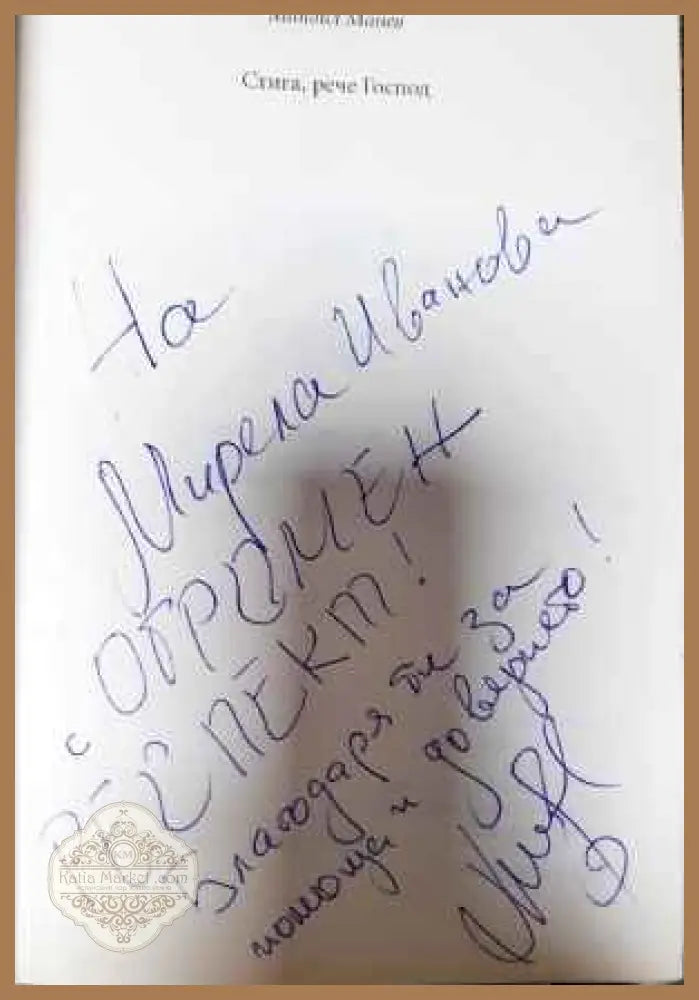 Стига, рече Господ
На
Мирела Иванова
с ОГРОМЕН
РЕСПЕКТ!
Благодаря ти за
помощта и доверието!
KM
Katia Market .com